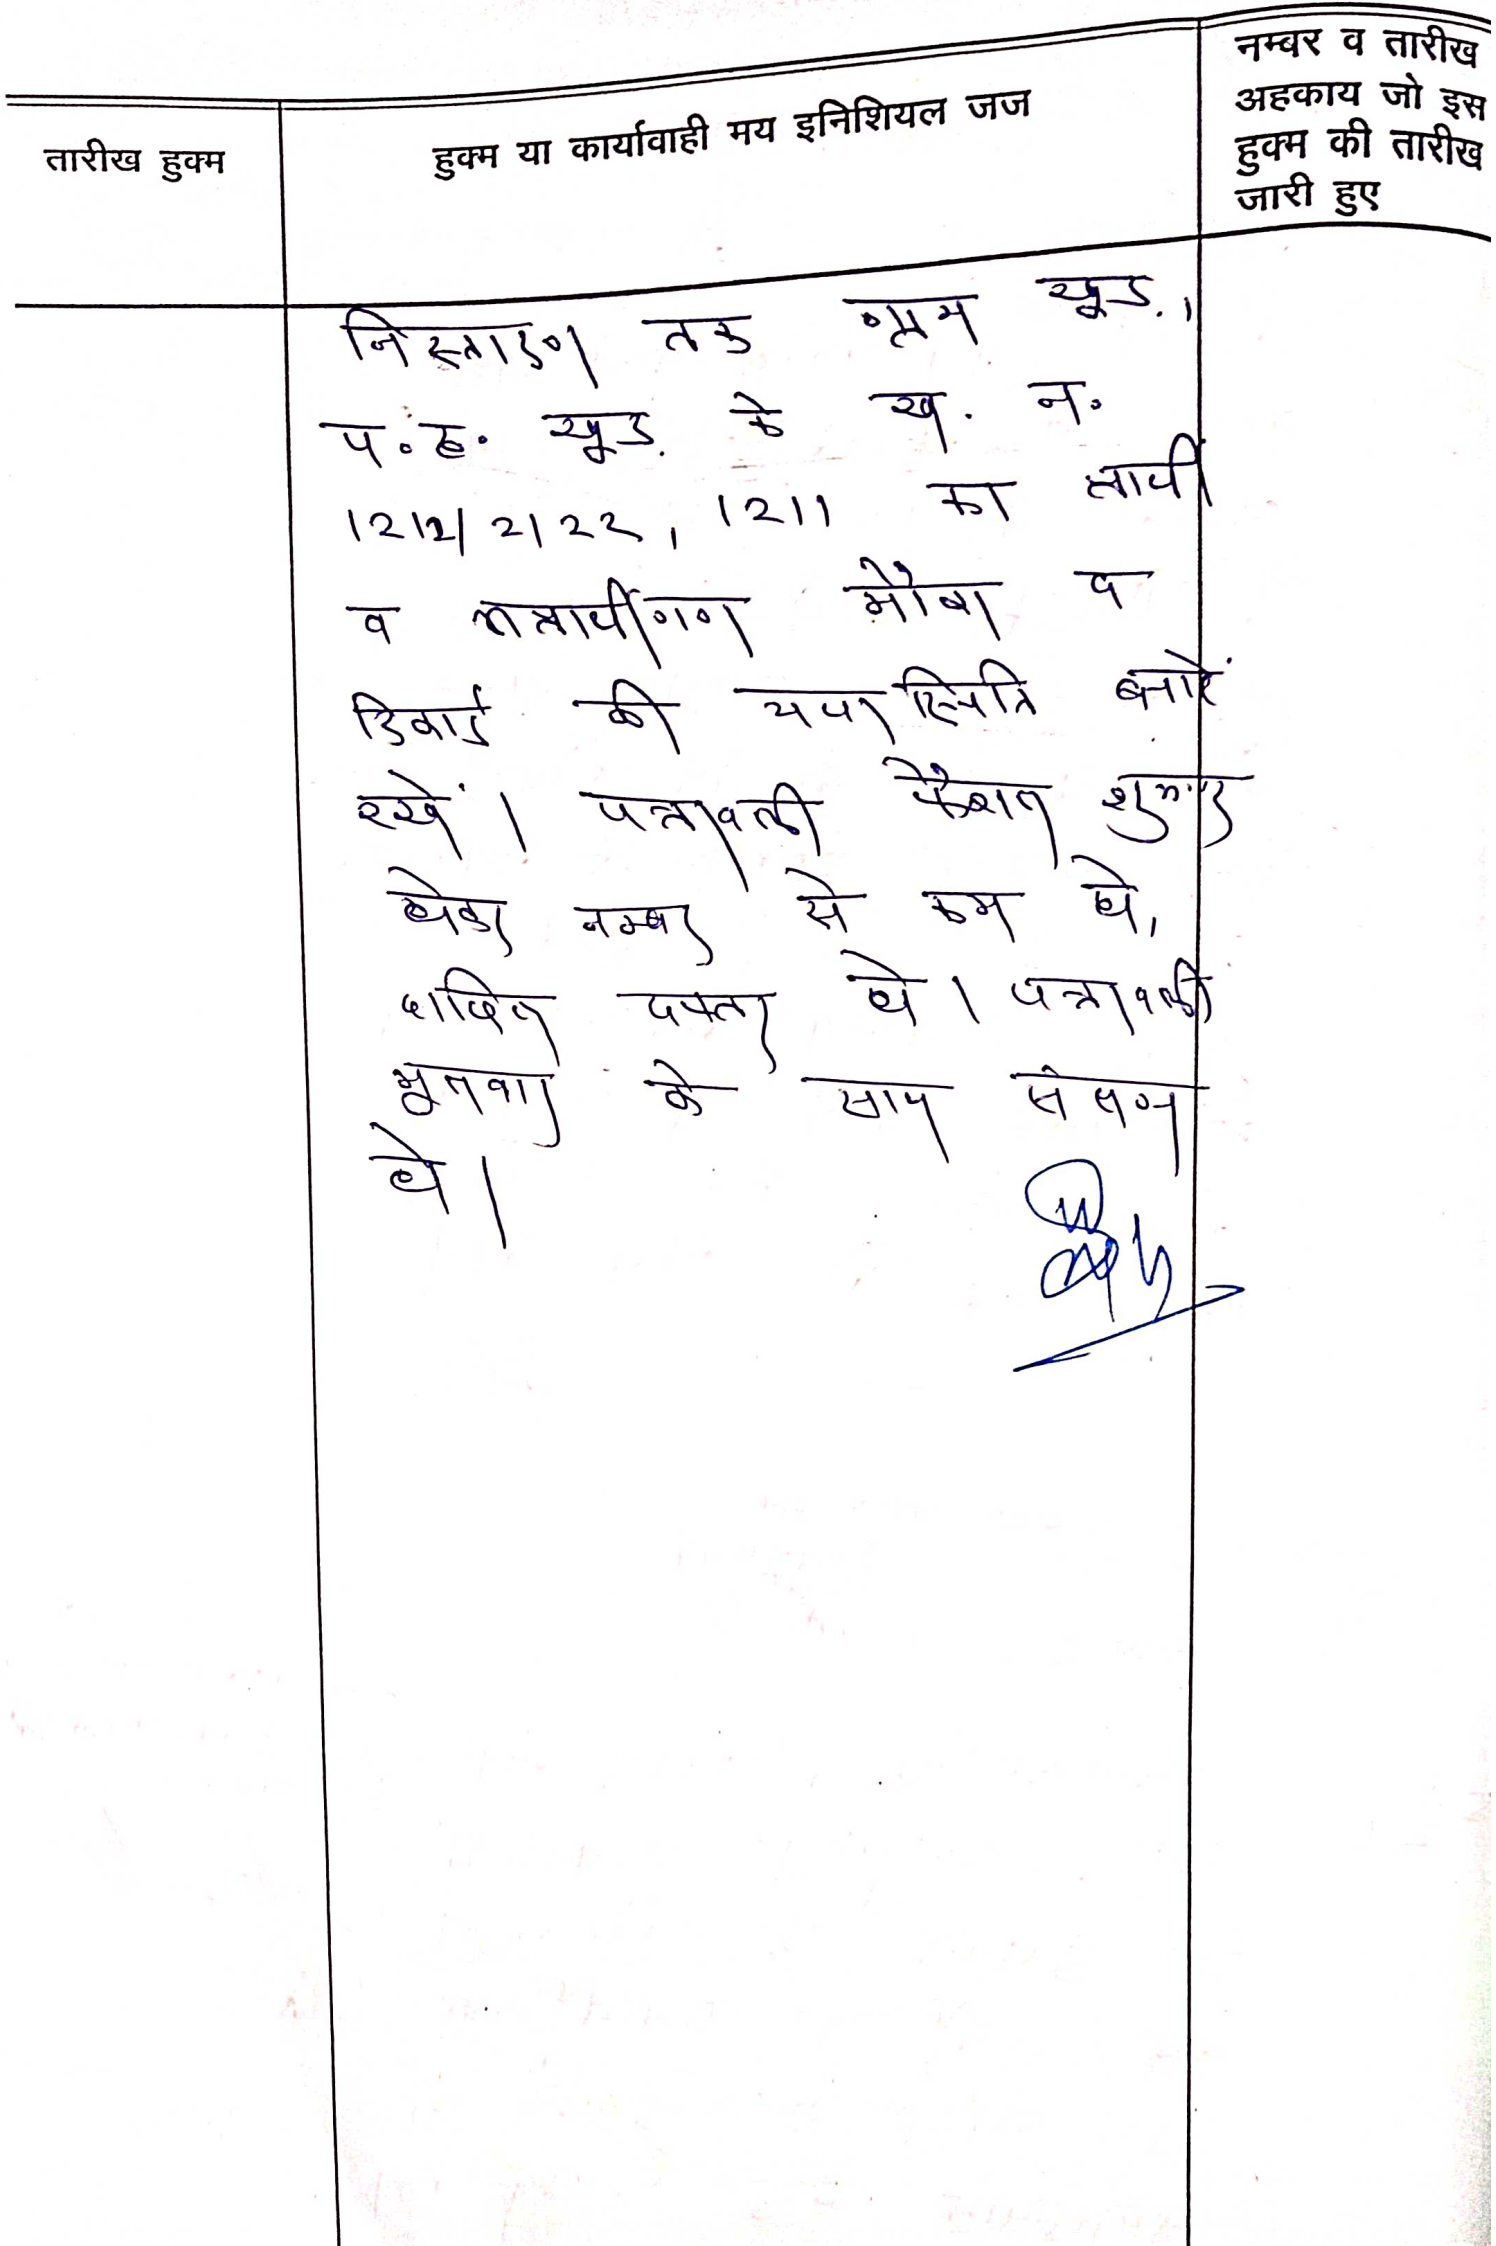 तारीख हुक्म
हुक्म या कार्यावाही मय इनिशियल जज
नम्बर व तारीख
अहकाय जो इस
हुक्म की तारीख
जारी हुए
निस्तारण तक ग्राम खूड,
प.ह. खूड के ख. नं.
1212/2122, 1211 का प्रार्थी
व अप्रार्थीगण मौका व
रिकार्ड की यथास्थिति बनाये
रखें। पत्रावली फैसल शुमार
होकर नम्बर से कम हो,
दाखिल दफ्तर हो। पत्रावली
मूलवाद के साथ संलग्न
हो।